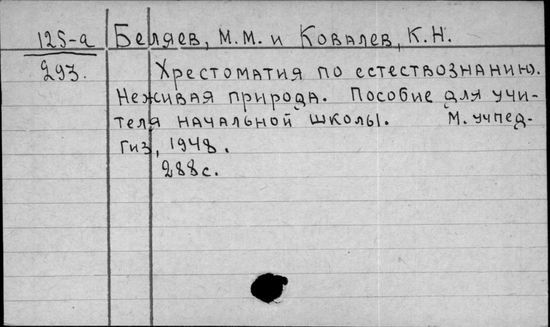 125-а Беляев, М.М. и Ковалев, К.Н.
293. Хрестоматия по естествознанию.
Неживая природа. Пособие для учи-
теля начальной школы. М. Учпед-
гиз, 1948.
288с.